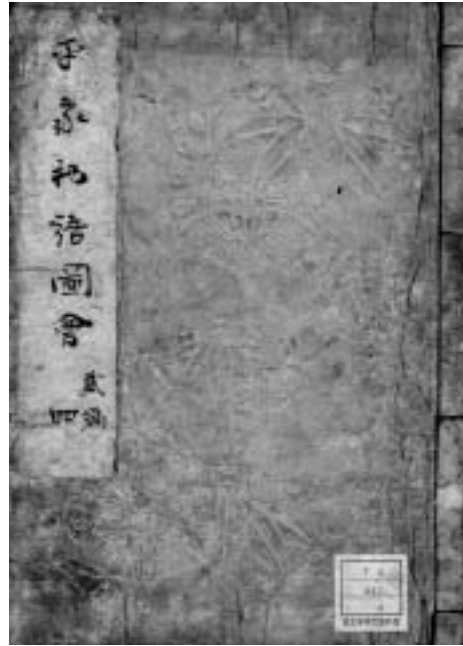 平家物語圖會
貳編
四